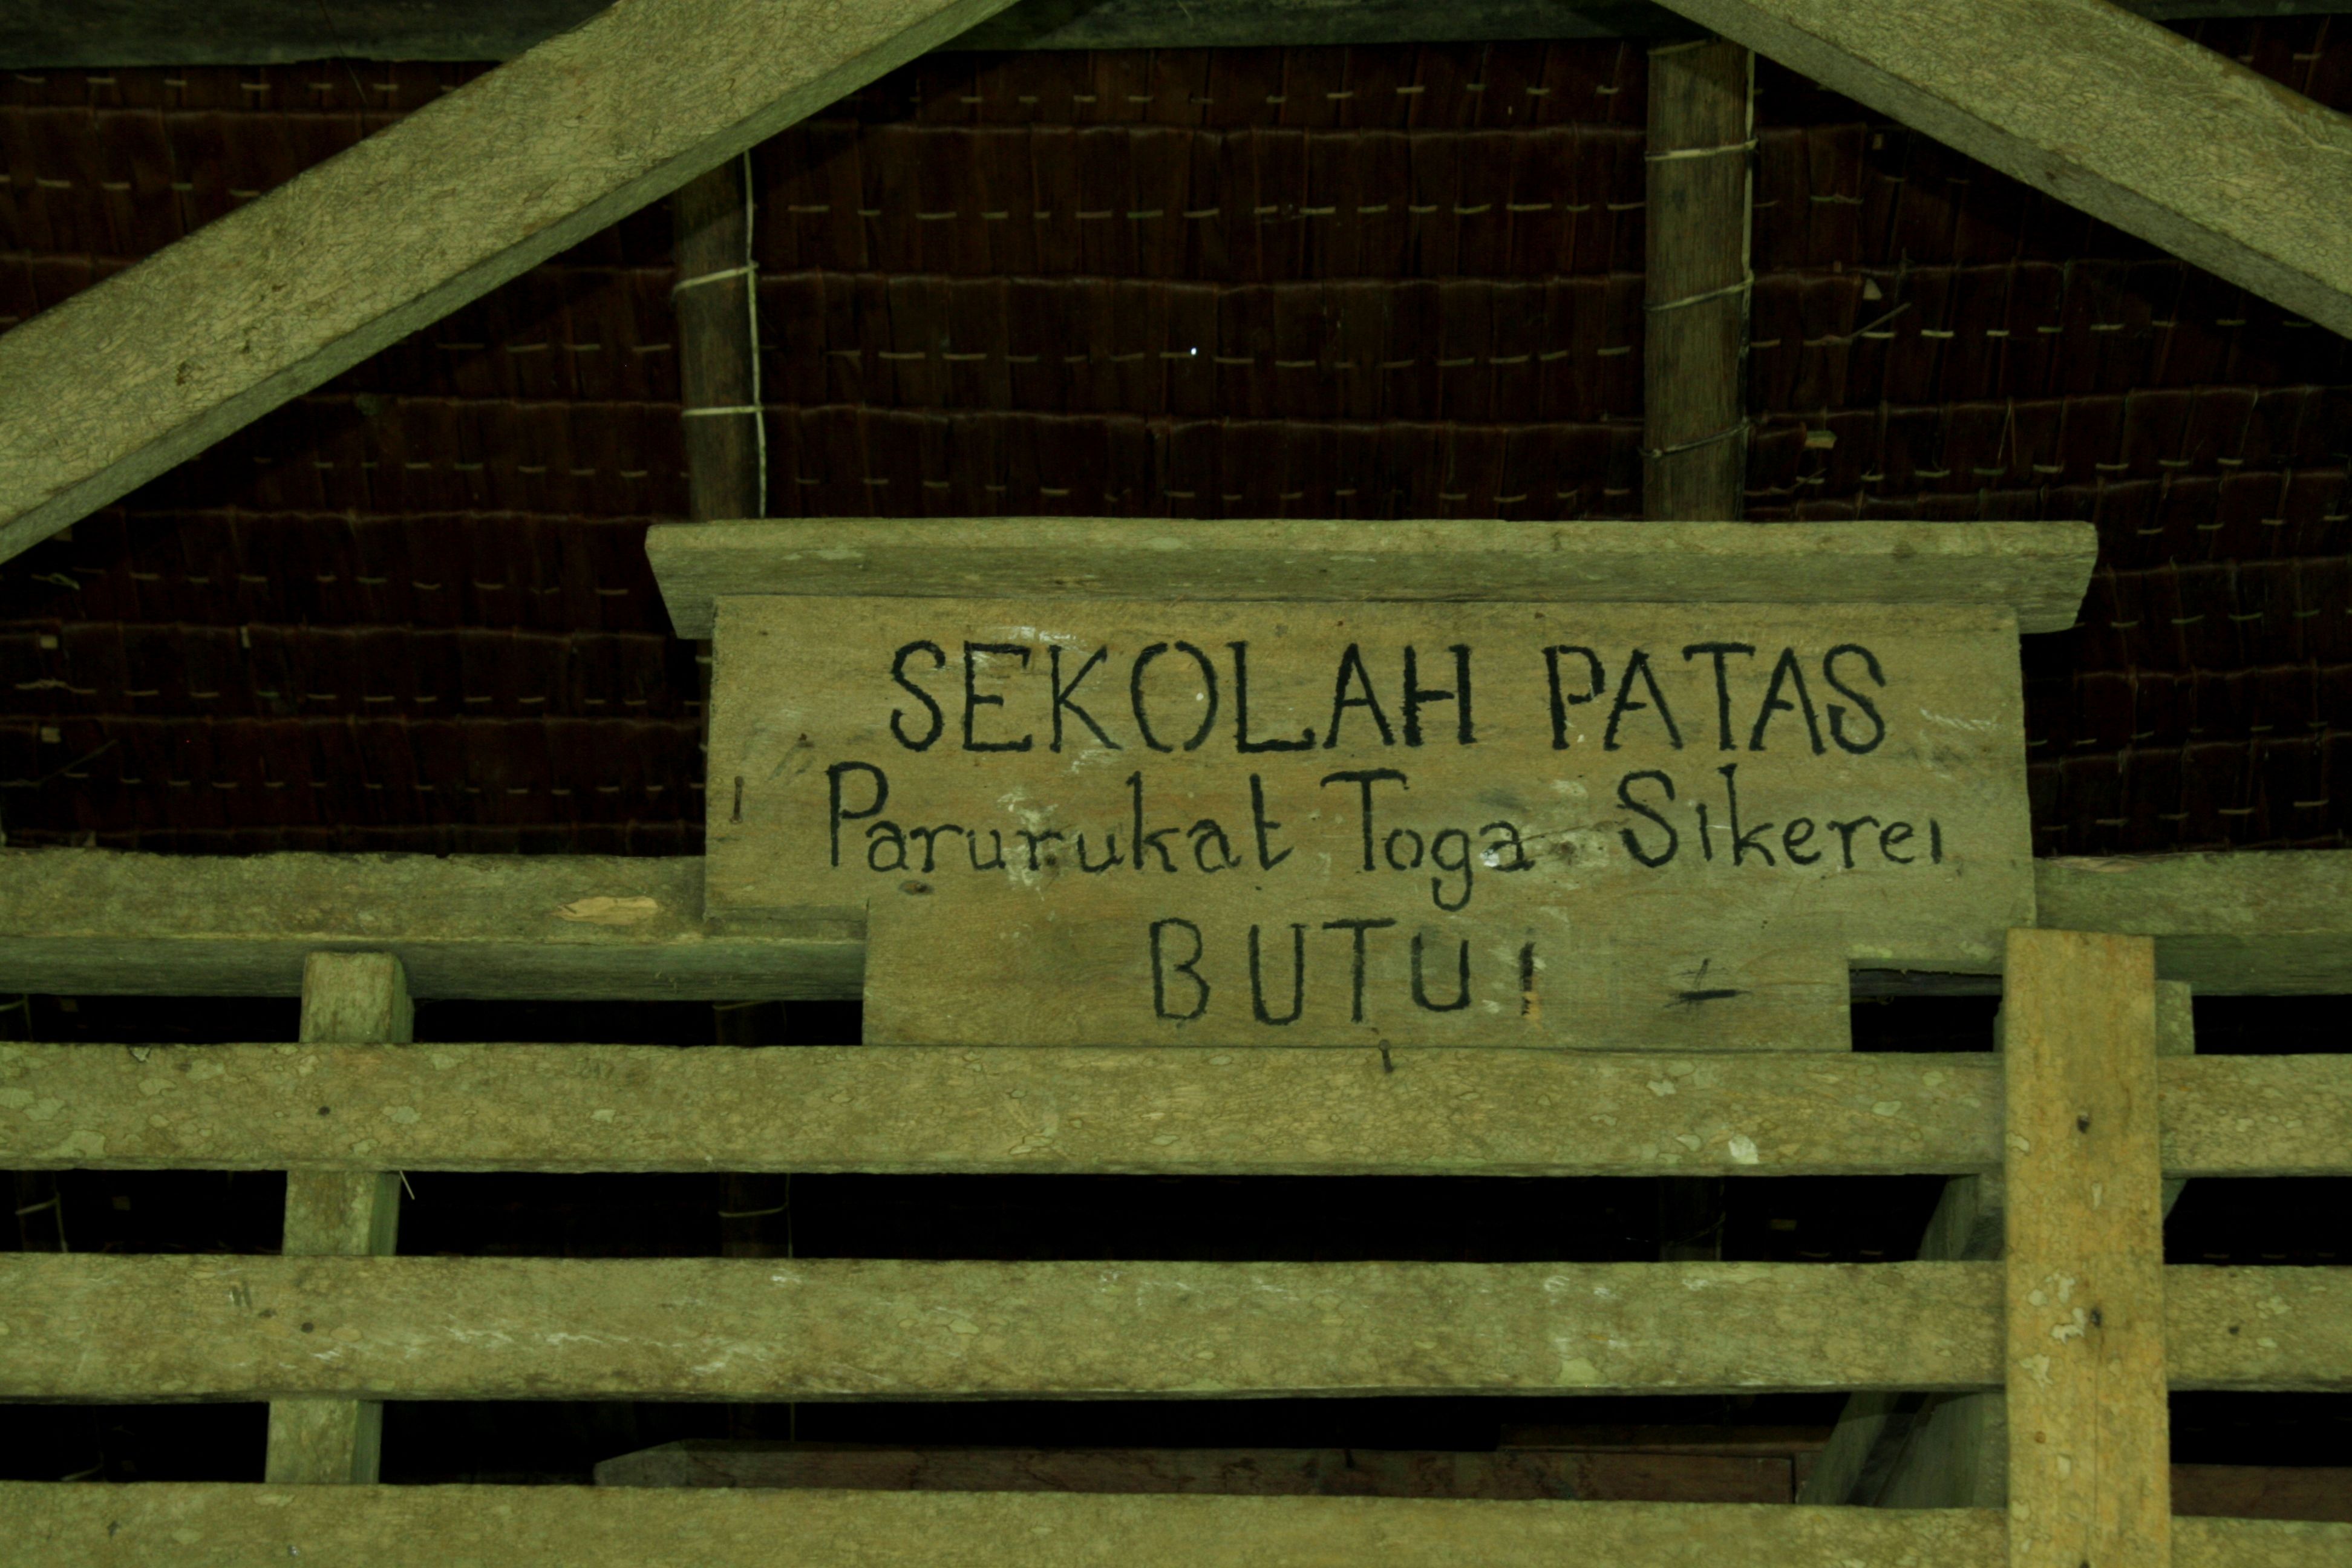 SEKOLAH PATAS
Parurukat Toga Sikerei
BUTUI